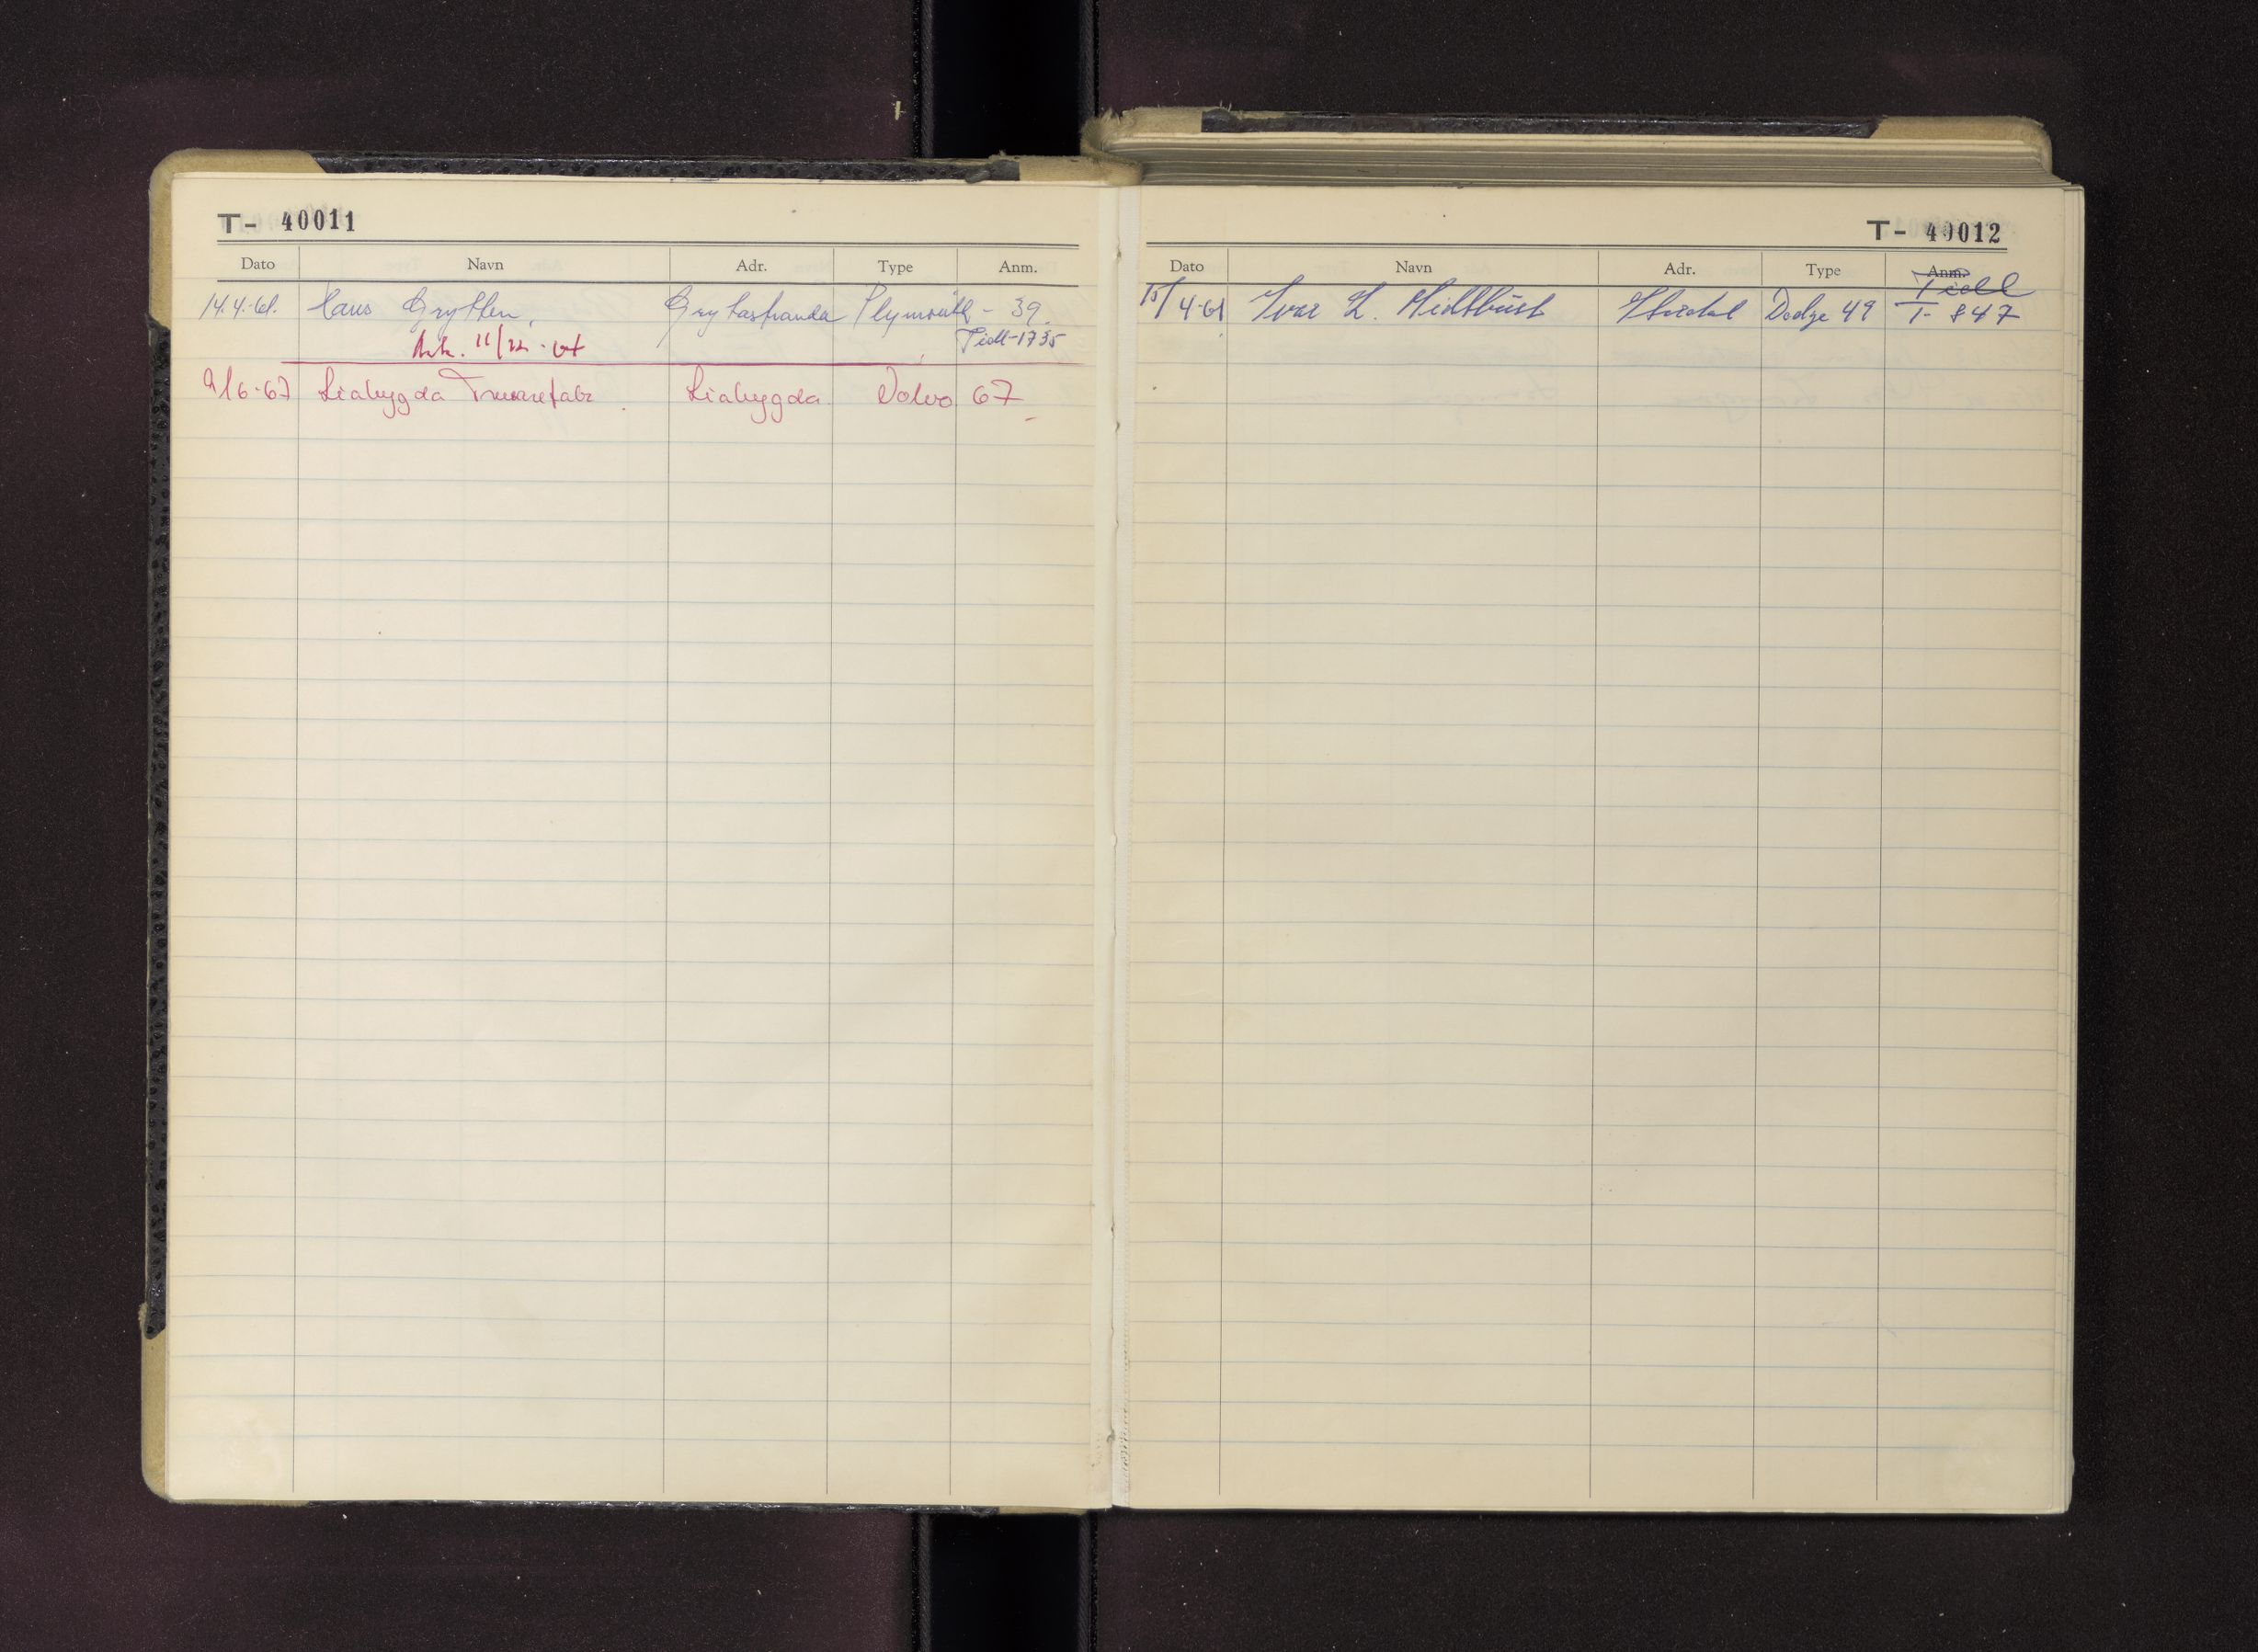 T- 40011
Dato Navn Adr. Type Anm.
14.4.61. Hans Grytten, Grytastranda Plymouth - 39.
Tidl-1735
9/6-67 Liabygda Trevarefabr. Liabygda Volvo 67
T- 40012
Dato Navn Adr. Type Anm.
Tidl
15/4-61 Ivar L. Midtbust Dodge 49 T- 847